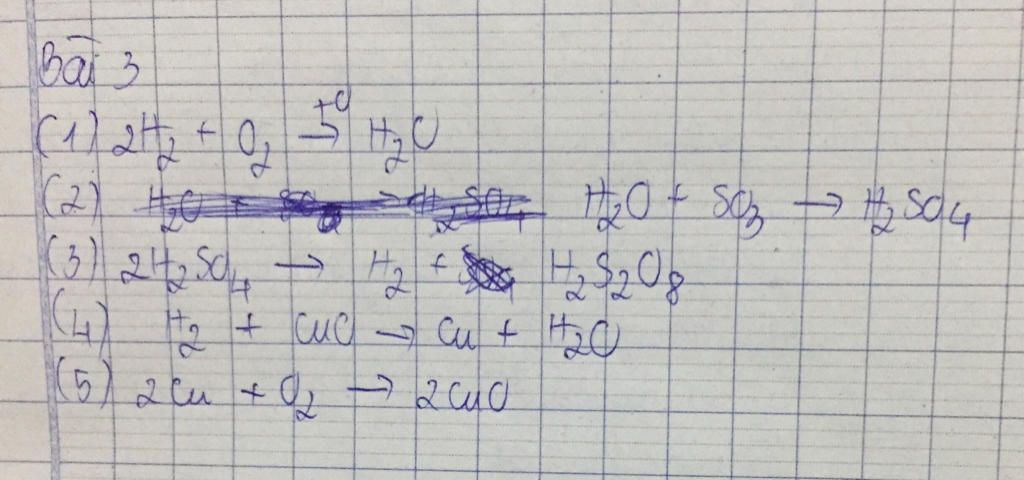 Bài 3
(1) 2H₂ + O₂ →^(t⁰) H₂O
(2) H₂O + SO₃ → H₂SO₄
(3) 2H₂SO₄ → H₂ + H₂S₂O₈
(4) H₂ + CuO → Cu + H₂O
(5) 2Cu + O₂ → 2CuO